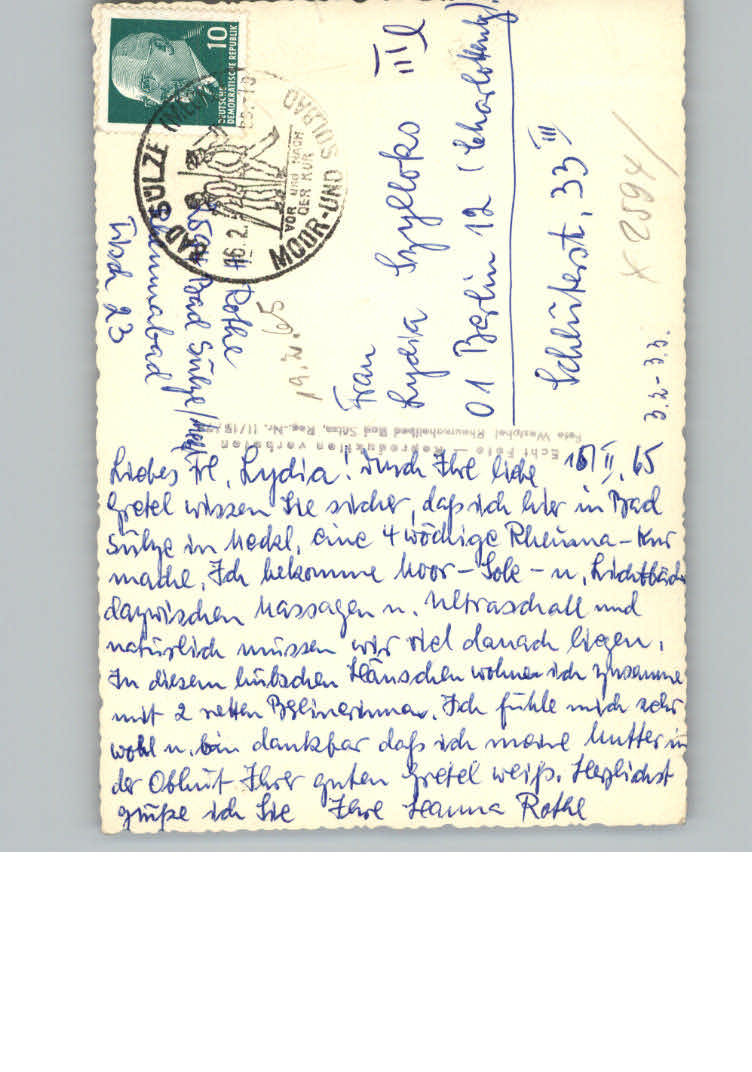 10
DEUTSCHE
DEMOKRATISCHE REPUBLIK
BAD SÜLZE
16.2.
VOR UND NACH
DER KUR
MOOR-UND SOLBAD
Rothe
Bad Sülze/Meckl
Tisch 23
19.2.65
Frau
Lydia
01 Berlin 12 (Charlottenbg).
Schlüterstr. 33 III
x 2594/
3.2-3.3.
Echt Foto — Reproduktion verboten
Foto Westphal Rheumaheilbad Bad Sülze, Reg.-Nr. II/18/
16/II. 65
Liebes Frl. Lydia! Durch Ihre liebe
Gretel wissen Sie sicher, daß ich hier in Bad
Sülze in Meckl. eine 4 wöchige Rheuma-Kur
mache. Ich bekomme Moor-Sole- u. Lichtbäder
dazwischen Massagen u. Ultraschall und
natürlich müssen wir viel danach liegen.
In diesem hübschen Häuschen wohne ich zusamme
mit 2 netten Berlinerinnen. Ich fühle mich sehr
wohl u. bin dankbar daß ich meine Mutter in
der Obhut Ihrer guten Gretel weiß. Herzlichst
grüße ich Sie Ihre Hanna Rothe